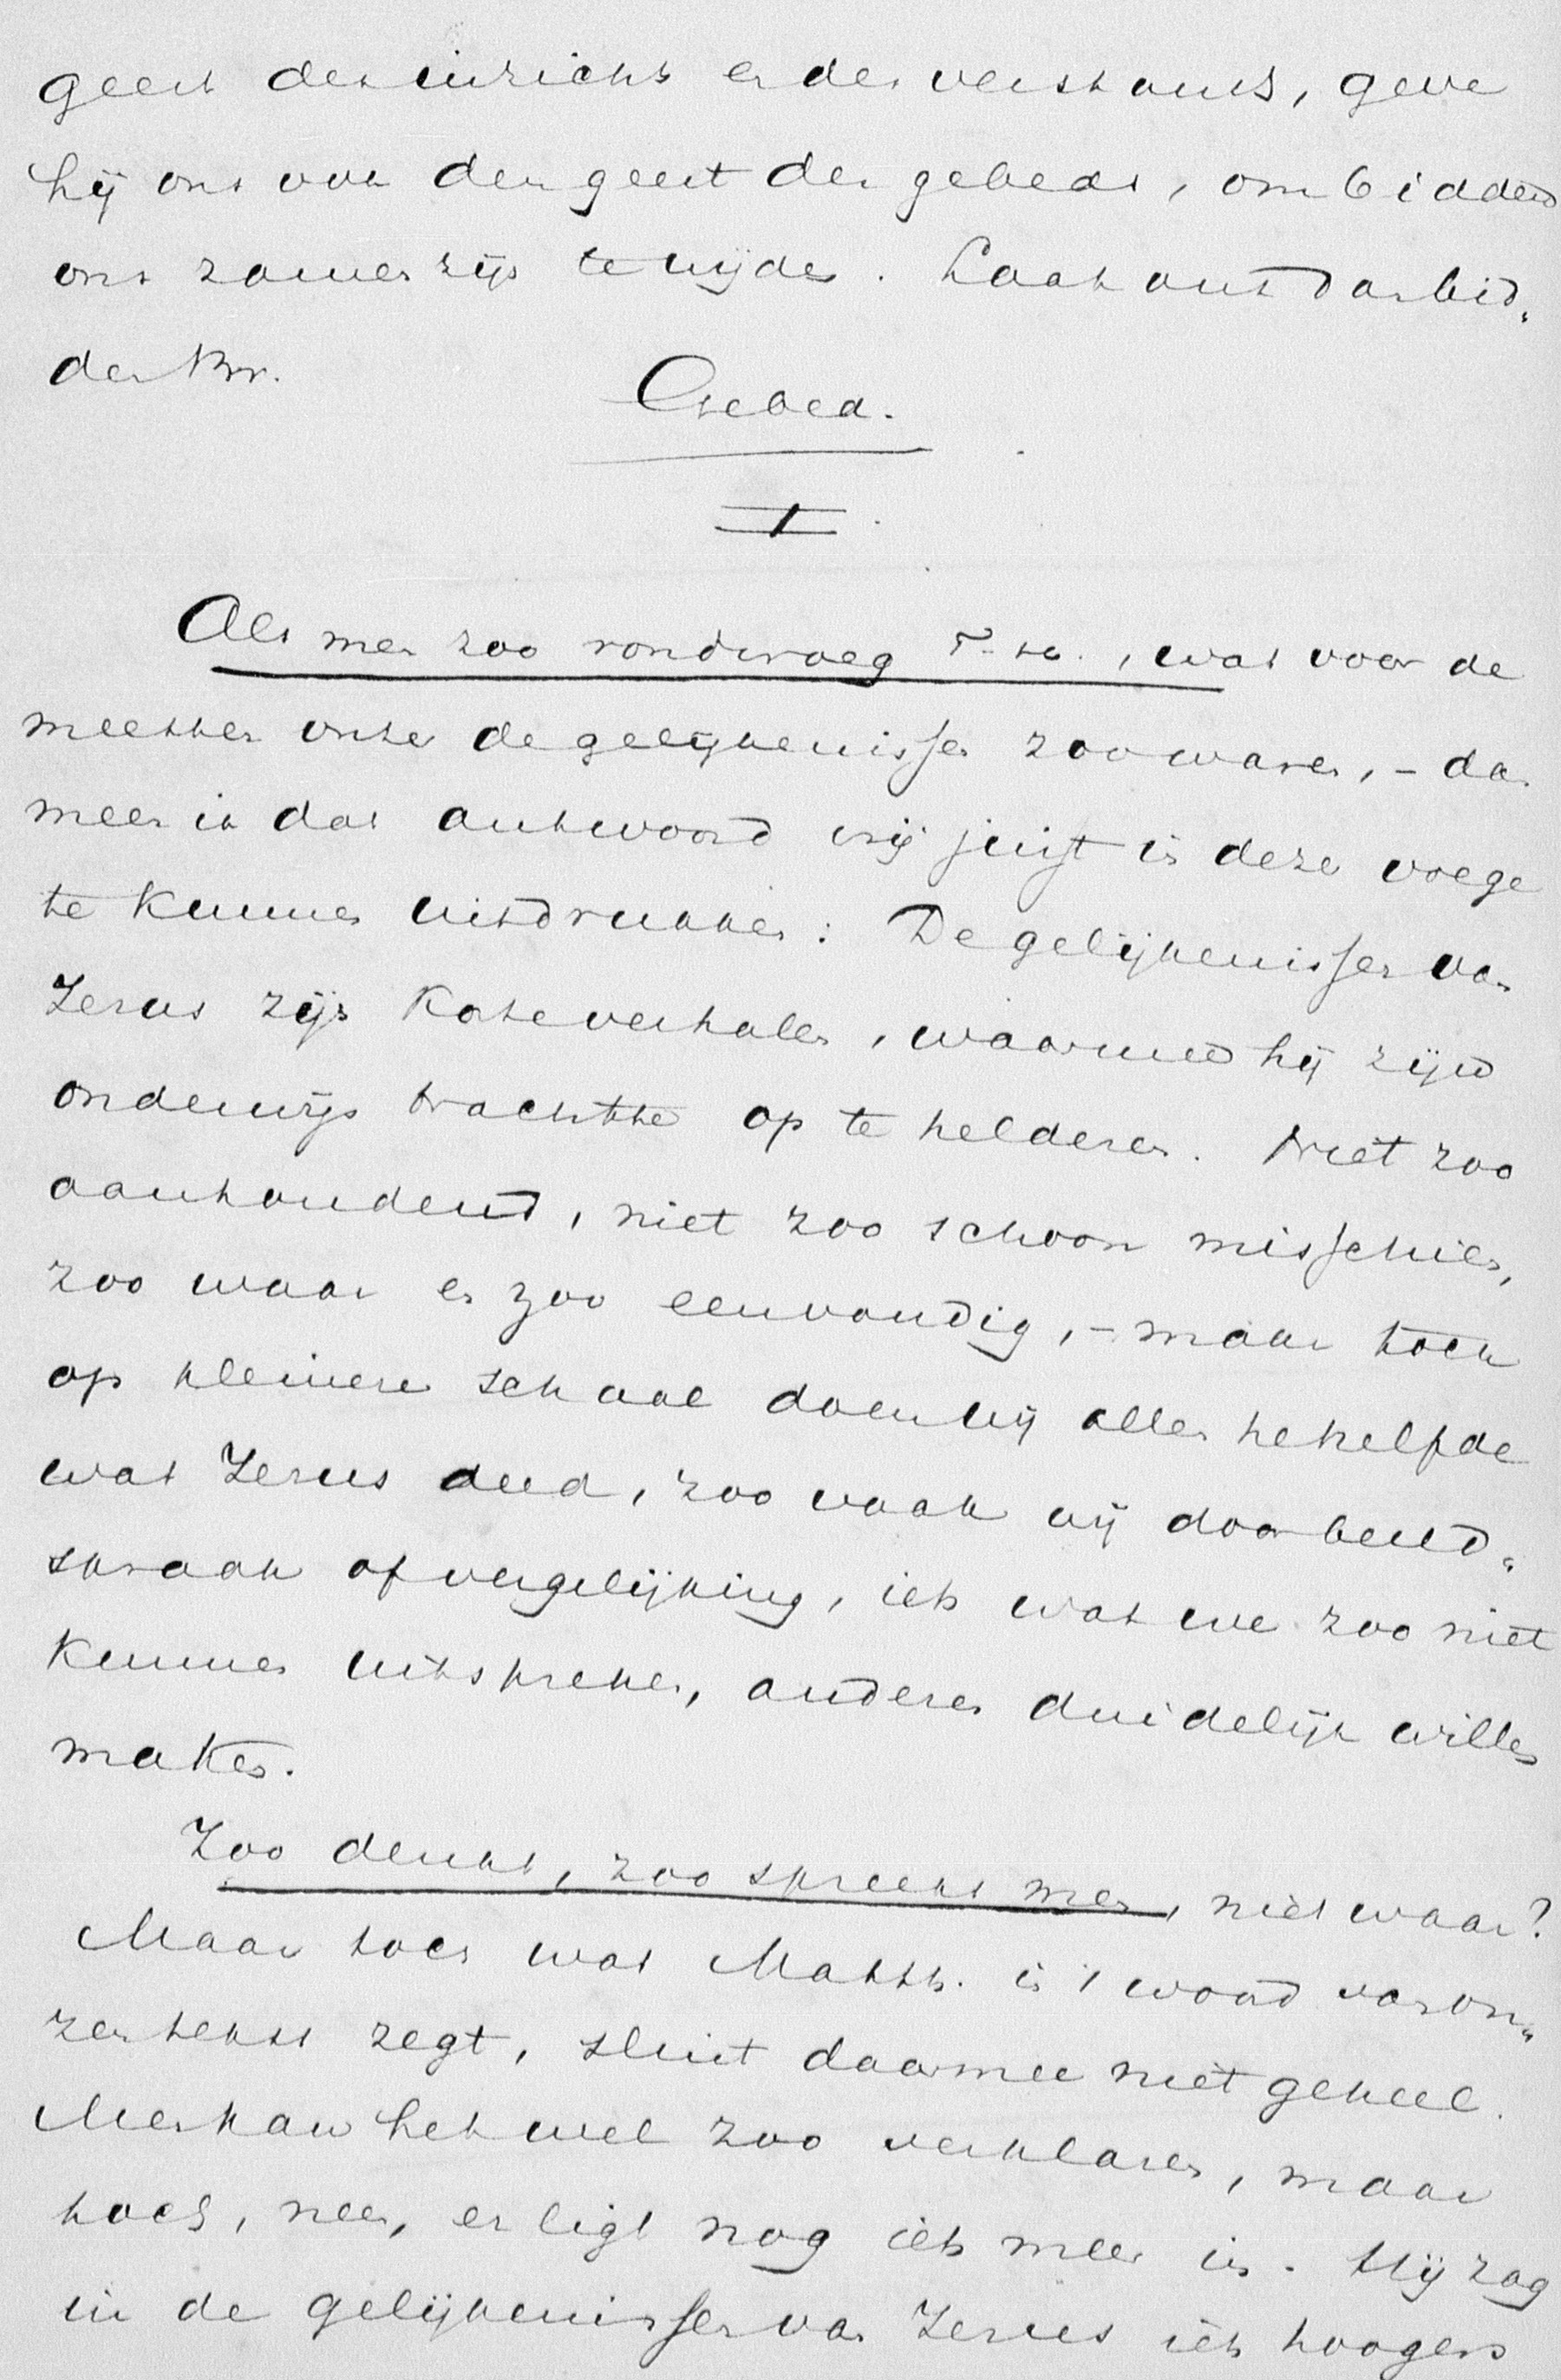 geest des inzichts en des verstands, geve
hij ons ook den geest des gebeds, om biddend
ons zamenzijn te wijden. Laat ons dan bid„
den Br.
Gebed.
I.
Als men zoo rondvroeg T. H., wat voor de
meesten onzer de gelijkenissen zoo waren, – dan
meen ik dat antwoord vrij juist in deze voege
te kunnen uitdrukken: De gelijkenissen van
Jezus zijn korte verhalen, waarmed hij zijn
onderwijs trachtte op te helderen. Niet zoo
aanhoudend, niet zoo schoon misschien,
zoo waar en zoo eenvoudig, – maar toch
op kleinere schaal doen wij allen hetzelfde
wat Jezus deed, zoo vaak wij door beeld„
spraak of vergelijking, iets wat we zoo niet
kunnen uitspreken, anderen duidelijk willen
maken.
Zoo denkt, zoo spreekt men, niet waar?
Maar toch wat Matth. in 't woord van on„
zen tekst zegt, sluit daarmee niet geheel.
Men kan het wel zoo verklaren, maar
toch, neen, er ligt nog iets meer in. Hij zag
in de gelijkenissen van Jezus iets hoogers